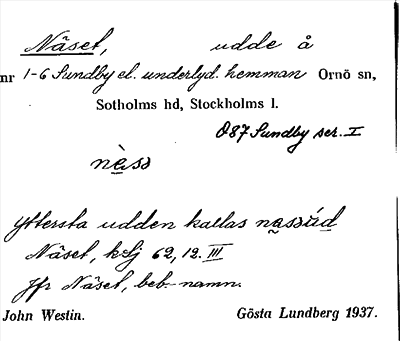 Näset, udde å
nr 1-6 Sundby el. underlyd. hemman Ornö sn,
Sotholms hd, Stockholms l.
087 Sundby ser. I
nä̀ss
Yttersta udden kallas nassúd
Näset, 62, 12. III
Jfr Näset, beb.-namn.
John Westin. Gösta Lundberg 1937.